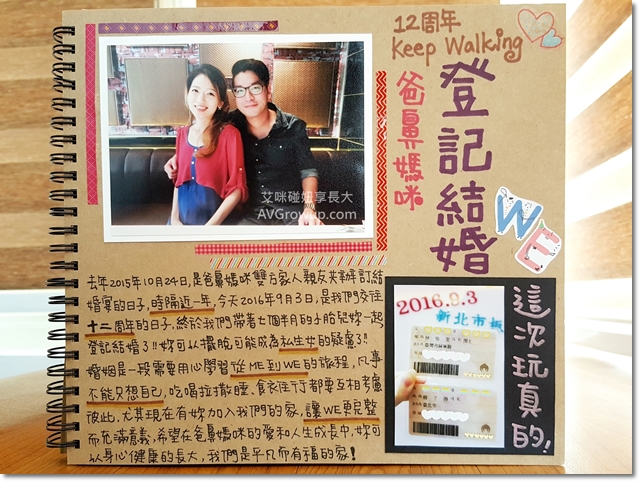 12周年
Keep Walking
爸鼻媽咪
登記結婚
WE
艾咪碰妞享長大
AVGrowup.com
去年2015年10月24日,是爸鼻媽咪雙方家人親友共辦訂結
婚宴的日子,時隔近一年,今天2016年9月3日,是我們交往
十二周年的日子,終於我們帶著七個半月的小胎兒妳一起
登記結婚了!!妳可以擺脫可能成為私生女的疑慮了!
婚姻是一段需要用心學習從ME到WE的旅程,凡事
不能只想自己,吃喝拉撒睡、食衣住行都要互相考慮
彼此,尤其現在有妳加入我們的家,讓WE更完整
而充滿意義,希望在爸鼻媽咪的愛和人生成長中,妳可
以身心健康的長大,我們是平凡而有福的家!
2016.9.3
新北市板
這次玩真的!